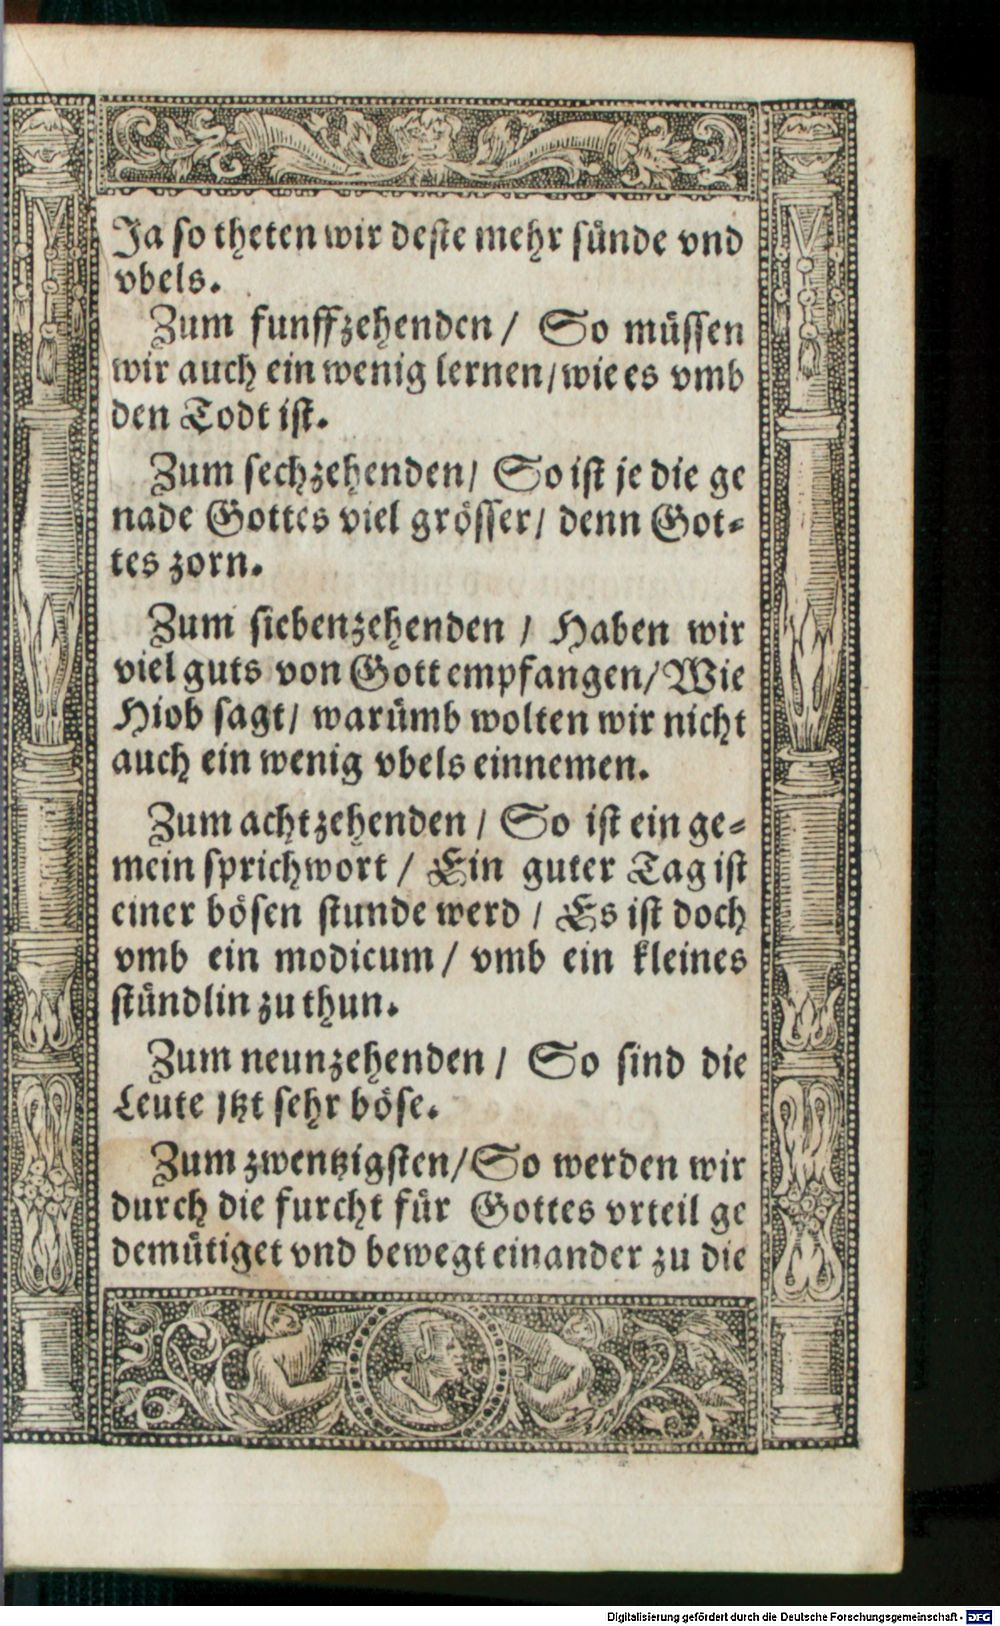 Ja so theten wir deste mehr sünde vnd
vbels.
Zum funffzehenden / So müssen
wir auch ein wenig lernen / wie es vmb
den Todt ist.
Zum sechzehenden / So ist je die ge
nade Gottes viel grösser / denn Got⸗
tes zorn.
Zum siebenzehenden / Haben wir
viel guts von Gott empfangen / Wie
Hiob sagt / warümb wolten wir nicht
auch ein wenig vbels einnemen.
Zum achtzehenden / So ist ein ge⸗
mein sprichwort / Ein guter Tag ist
einer bösen stunde werd / Es ist doch
vmb ein modicum / vmb ein kleines
stündlin zu thun.
Zum neunzehenden / So sind die
Leute jtzt sehr böse.
Zum zwentzigsten / So werden wir
durch die furcht für Gottes vrteil ge
demütiget vnd bewegt einander zu die
Digitalisierung gefördert durch die Deutsche Forschungsgemeinschaft - DFG